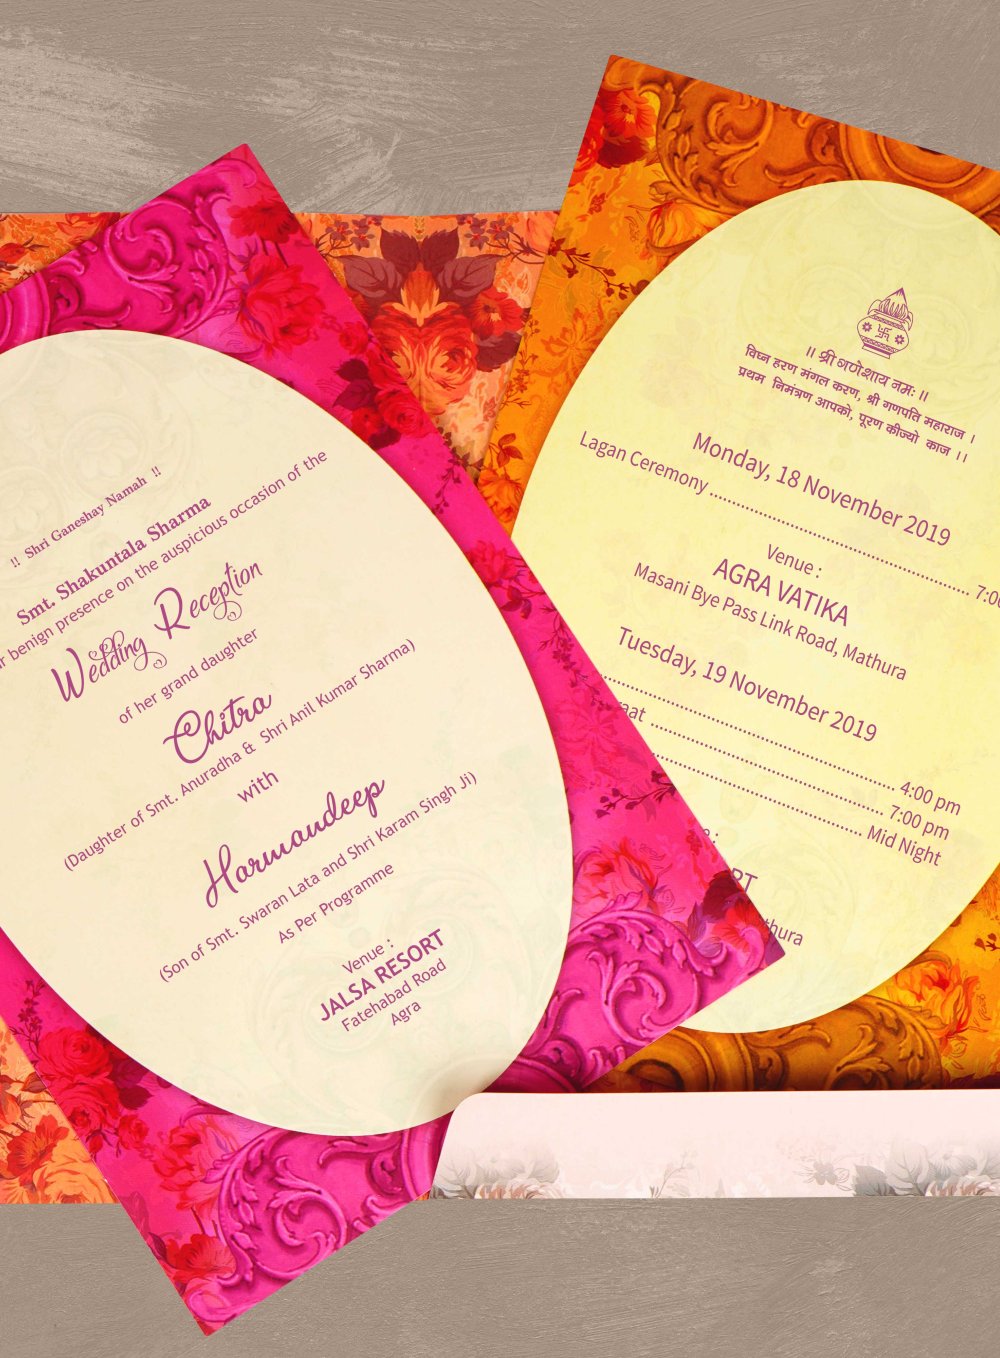 !! Shri Ganeshay Namah !!
Smt. Shakuntala Sharma
benign presence on the auspicious occasion of the
Wedding Reception
of her grand daughter
Chitra
(Daughter of Smt. Anuradha & Shri Anil Kumar Sharma)
with
Harmandeep
(Son of Smt. Swaran Lata and Shri Karam Singh Ji)
As Per Programme
Venue :
JALSA RESORT
Fatehabad Road
Agra
।। श्री गणेशाय नमः ।।
विघ्न हरण मंगल करण, श्री गणपति महाराज ।
प्रथम निमंत्रण आपको, पूरण कीज्यो काज ।।
Monday, 18 November 2019
Lagan Ceremony ........................................ 7:00
Venue :
AGRA VATIKA
Masani Bye Pass Link Road, Mathura
Tuesday, 19 November 2019
........................................ 4:00 pm
........................................ 7:00 pm
........................................ Mid Night